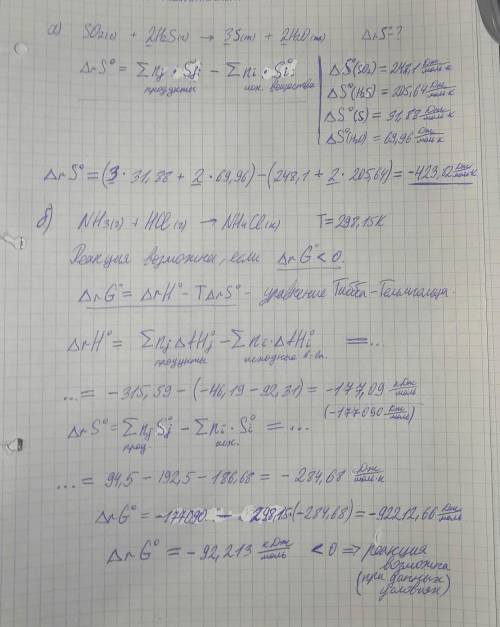 а) SO₂(г) + 2H₂S(г) → 3S(т) + 2H₂O(ж) ΔrS°-?
ΔrS° = Σnj · Sj° – Σni · Si°
продукты исх. вещества
ΔS°(SO₂) = 248,1 Дж/моль·К
ΔS°(H₂S) = 205,64 Дж/моль·К
ΔS°(S) = 31,88 Дж/моль·К
ΔS°(H₂O) = 69,96 Дж/моль·К
ΔrS° = (3 · 31,88 + 2 · 69,96) – (248,1 + 2 · 205,64) = -423,82 Дж/моль·К
б) NH₃(г) + HCl(г) → NH₄Cl(к) T = 298,15K
Реакция возможна, если ΔrG° < 0.
ΔrG° = ΔrH° – TΔrS° – уравнение Гиббса-Гельмгольца.
ΔrH° = ΣnjΔfHj° – Σni · ΔfHi° = ...
продукты исходные в-ва
... = -315,59 – (-46,19 – 92,31) = -177,09 кДж/моль
(-177090 Дж/моль)
ΔrS° = ΣnjSj° – Σni · Si° = ...
прод. исх.
... = 94,5 – 192,5 – 186,68 = -284,68 Дж/моль·К
ΔrG° = -177090 – 298,15·(-284,68) = -92212,66 Дж/моль
ΔrG° = -92,213 кДж/моль < 0 ⇒ реакция
возможна
(при данных
условиях)